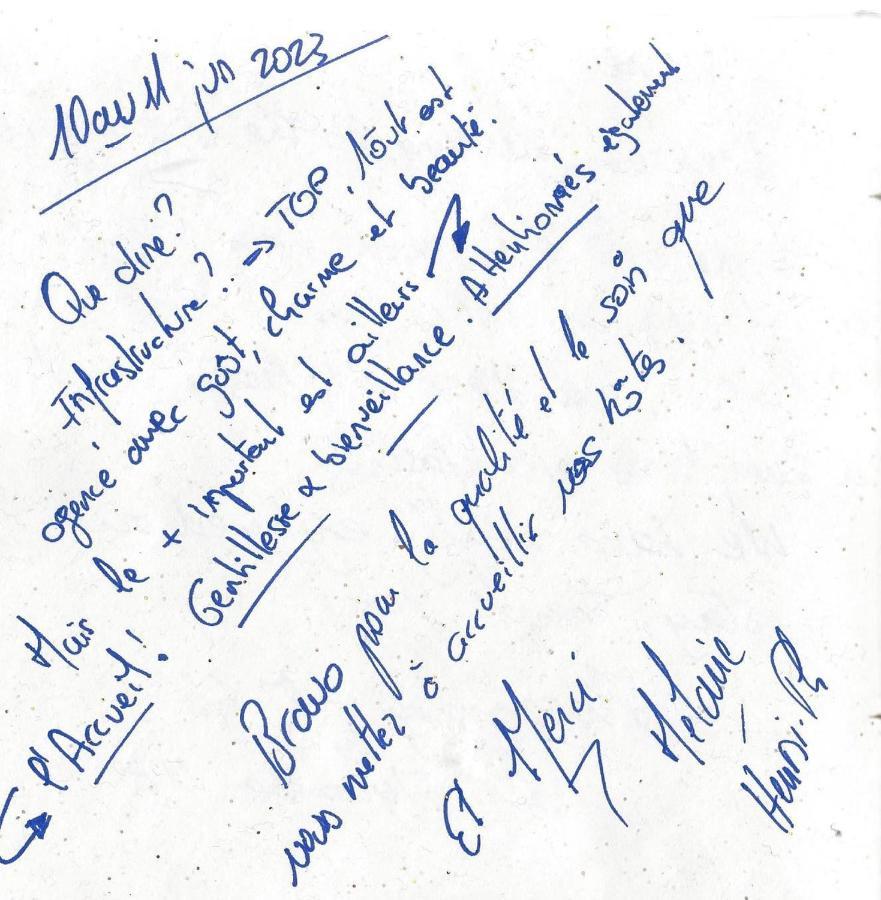 10 au 11 juin 2023
Que dire?
Infrastructure? → TOP, tout est
agencé avec goût, charme et beauté.
Mais le + important est ailleurs
l'Accueil! Gentillesse & bienveillance. Attentionnés également
Bravo pour la qualité et le soin que
vous mettez à accueillir vos hôtes.
Et Merci
Mélanie
Henri-Ph